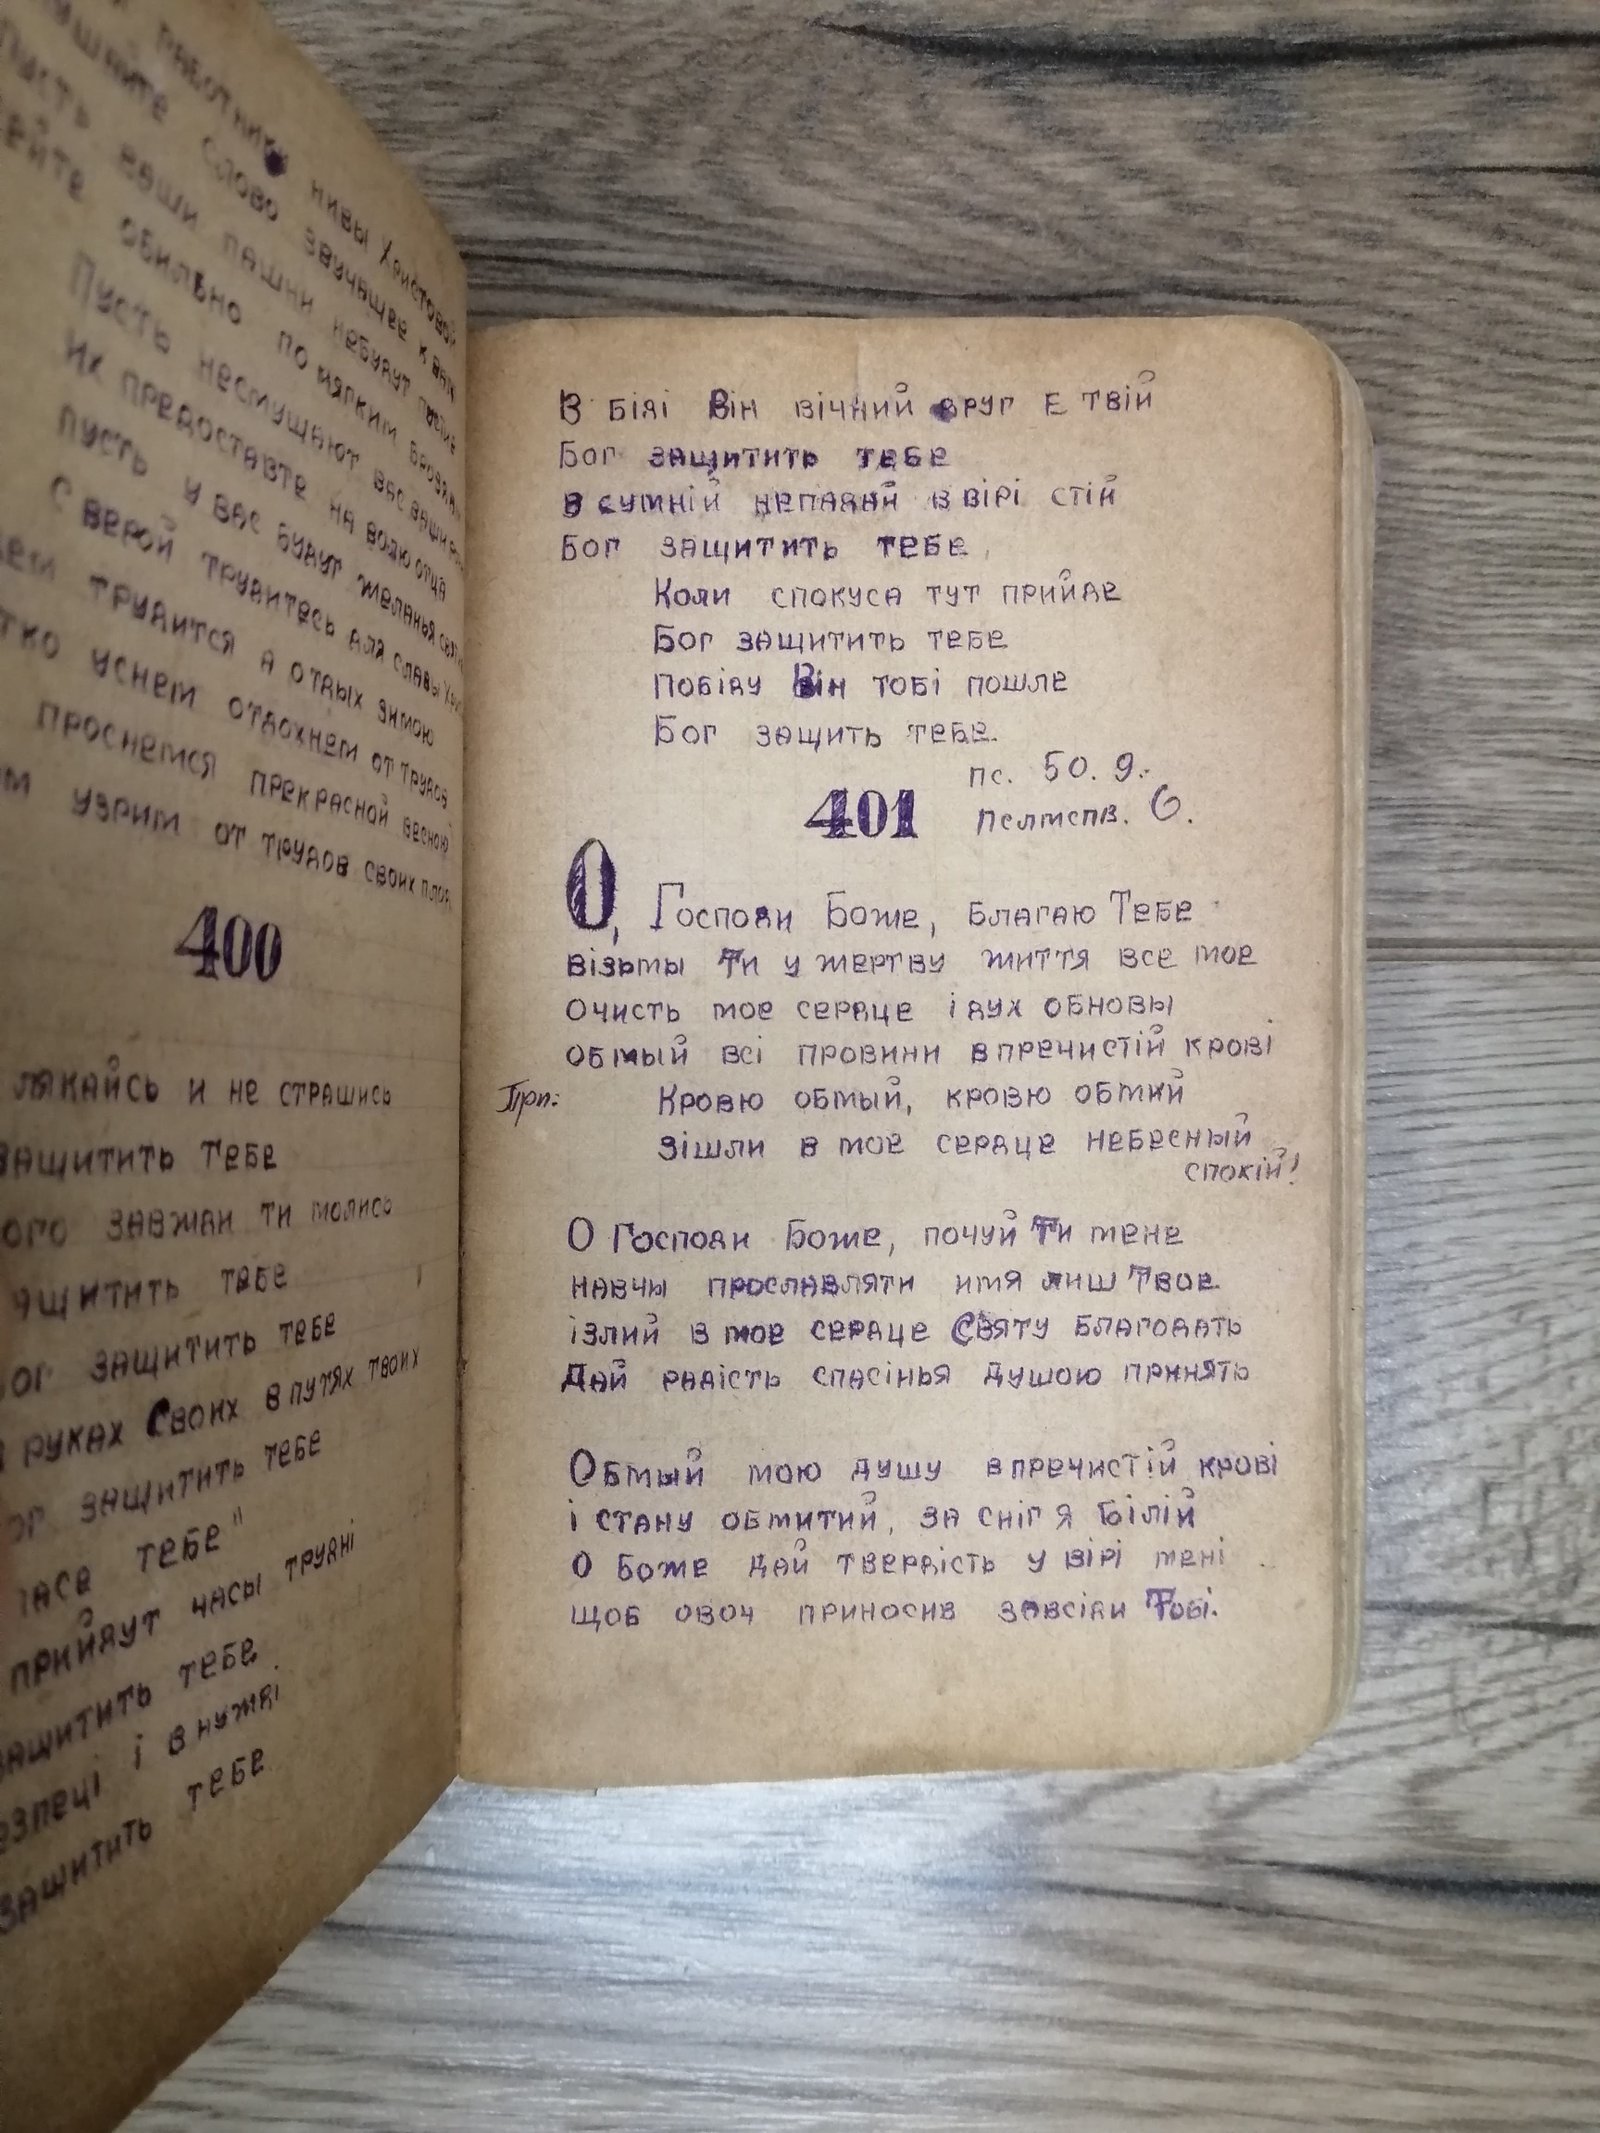 работники нивы Христовой
слово звучащее к вам
пусть ваши пашни небудут
обильно по мягким
Пусть несмущают вас ваши
Их предоставте на волю отца
пусть у вас будут желанья
С верой трудитесь для славы
трудится а отдых зимою
уснем отдохнем от трудов
проснемся прекрасной весною
узрим от трудов своих
400
лякайсь и не страшись
защитить тебе
завжди ти молись
защитить тебе
защитить тебе
руках Своих в путях твоих
защитить тебе
тебе"
прийдут часы трудні
защитить тебе
і в нужді
защитить тебе
В біді Він вічний друг е твій
Бог защитить тебе
в сумній непадай в вірі стій
Бог защитить тебе
Коли спокуса тут прийде
Бог защитить тебе
Побіду Він тобі пошле
Бог защить тебе.
пс. 50. 9.
401 6.
О, Господи Боже, благаю Тебе
візьмы Ти у жертву життя все мое
очисть мое сердце і дух обновы
обмый всі провини впречистій крові
При: Кровю обмый, кровю обмий
Зішли в мое сердце небесный
спокій!
О Господи Боже, почуй Ти мене
навчы прославляти имя лиш Твое
ізлий в мое сердце Святу благодать
Дай радість спасінья душою принять
Обмый мою душу впречистій крові
і стану обмитий, за сніг я білій
О Боже дай твердість у вірі мені
щоб овоч приносив завсіди Тобі.